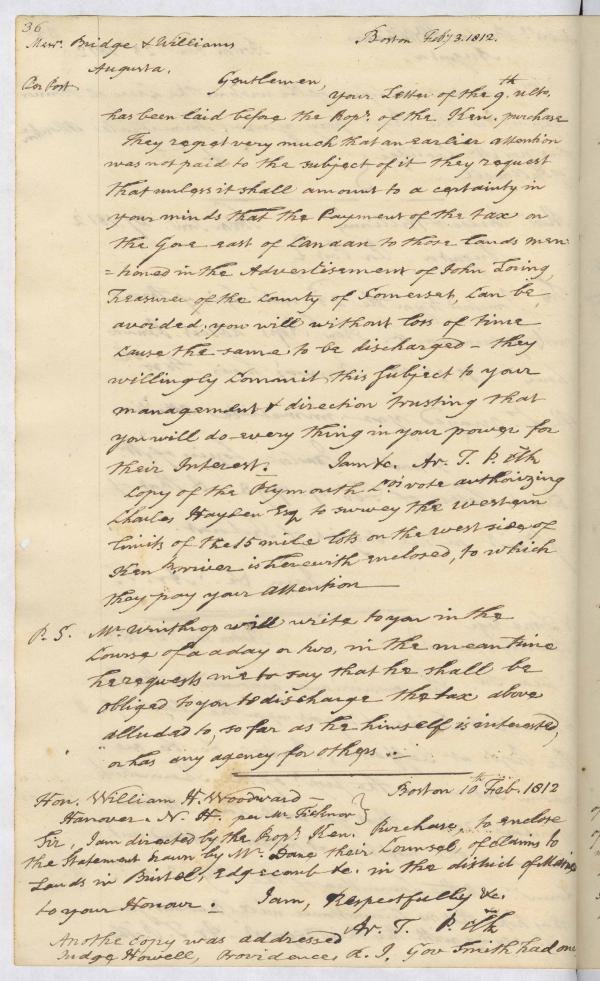 36
Messrs. Bridge & Williams Boston Feby 3. 1812.
Augusta.
Per Post Gentlemen,
your Letter of the 9.th ulto.
has been laid before the Propr. of the Ken. purchase
They regret very much that an earlier attention
was not paid to the subject of it they request
that unless it shall amount to a certainty in
your minds that the Payment of the tax on
the Gore east of Candan to those lands men-
=tioned in the Advertisement of John Loring,
Treasurer of the County of Somerset, can be
avoided, you will without loss of time
cause the same to be discharged - they
willingly commit this subject to your
management & direction trusting that
you will do every thing in your power for
their Interest. I am &c. Ar. T. P. Clk
Copy of the Plymouth Co's vote authorizing
Charles Hayden Esq to survey the western
limits of the 15 mile lots on the west side of
Ken.n river is herewith enclosed, to which
they pray your attention
P. S. Mr. Winthrop will write to you in the
course of a day or two, in the mean time
he requests me to say that he shall be
obliged to you to discharge the tax above
alluded to, so far as he himself is interested,
or has any agency for others ..
Boston 10th Feb. 1812
Hon. William H. Woodward -
Hanover. N. H. per Mr.
Sir, I am directed by the Propr. Ken. Purchase, to enclose
the Statement drawn by Mr. Dane their Counsel, of claims to
Lands in Bristol, Edgecomb &c. in the district of Maine
to your Honour. I am, Respectfully &c.
Ar. T. P. Clk
Anothe copy was addressed
Judge Howell, Providence, R. I. Gov Smith had one